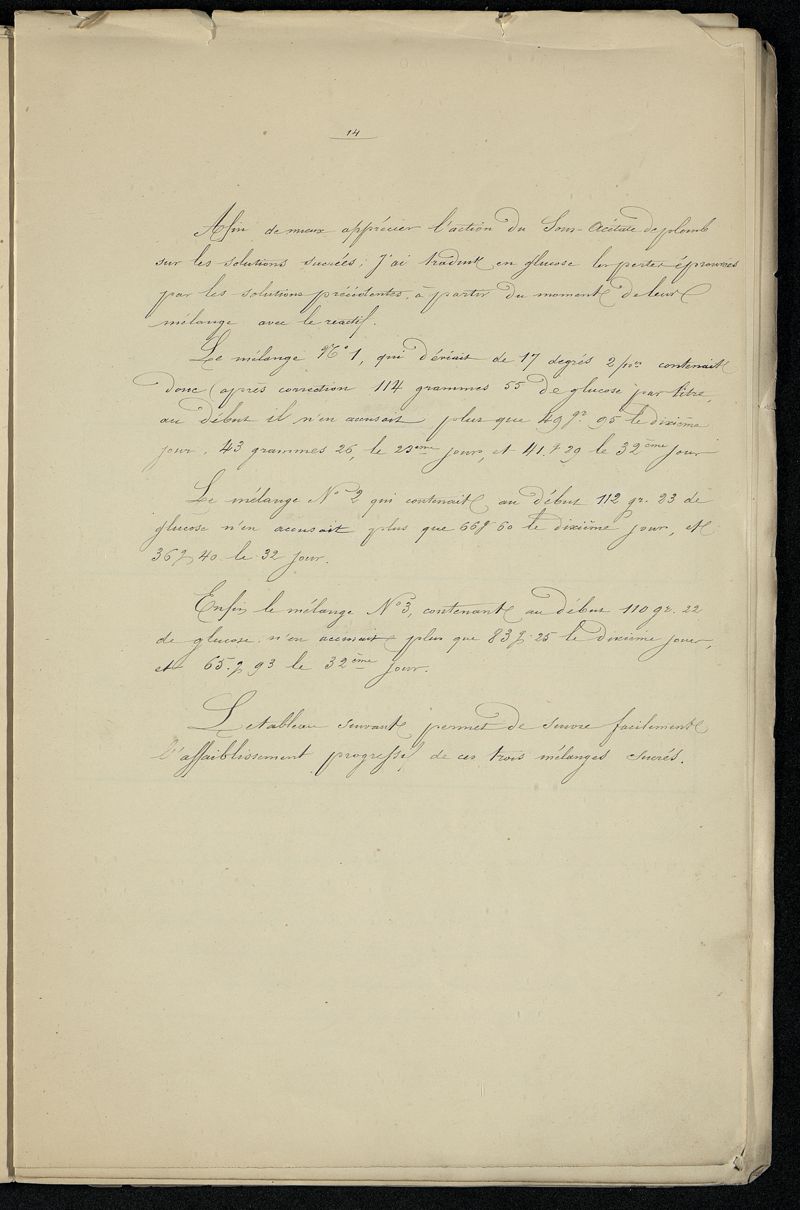 14
Afin de mieux apprécier l'action du Sous-Acétate de plomb
sur les solutions sucrées, j'ai traduit en glucose les pertes éprouvées
par les solutions précédentes, à partir du moment de leur
mélange avec le réactif.
Le mélange N° 1, qui déviait de 17 degrés 2 contenait
donc (après correction 114 grammes 55 de glucose par litre,
au début il n'en accusait plus que 49 gr 95 le dixième
jour, 43 grammes 26, le 23ème jour, et 41.g 29 le 32ème jour
Le mélange N° 2 qui contenait au début 112 gr. 23 de
glucose n'en accusait plus que 66g 60 le dixième jour, et
36g, 40 le 32 jour.
Enfin le mélange N° 3, contenant au début 110 gr. 22
de glucose n'en accusait plus que 83g. 25 le dixième jour,
et 65.g 93 le 32ème jour.
Le tableau suivant permet de suivre facilement
l'affaiblissement progressif de ces trois mélanges sucrés.